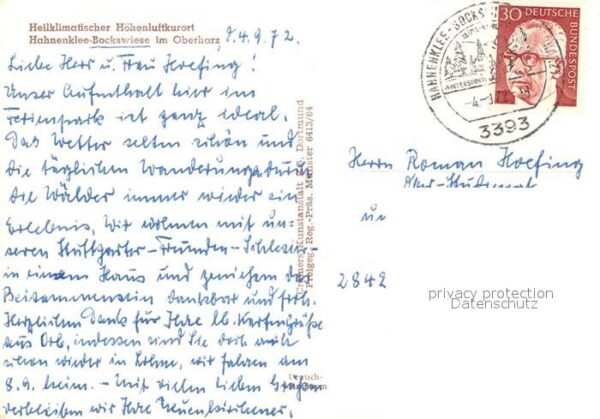 Heilklimatischer Höhenluftkurort
Hahnenklee-Bockswiese im Oberharz, d. 4.9.72.
Liebe Herr u. Frau Hoefing!
Unser Aufenthalt hier im
Ferienpark ist ganz ideal.
Das Wetter selten schön und
die täglichen Wanderungen durch
die Wälder immer wieder ein
Erlebnis. Wir wohnen mit un-
seren Stuttgarter-Freunden-Schlesier-
in einem Haus und genießen das
Beisammensein dankbar und froh.
Herzlichen Dank für Ihre lb. Kartengrüße
aus Orb, indessen sind Sie doch auch
schon wieder in Lohne, wir fahren am
8.9. heim. - Mit vielen lieben Grüßen
verbleiben wir Ihre Neuenkirchener,
Cramers Kunstanstalt KG, Dortmund
Freigeg. Reg.-Präs. Münster 6413/64
HAHNENKLEE-BOCKS
WINTERSPORT
-4.-9.72
3393
30 DEUTSCHE BUNDESPOST
Herrn Roman Hoefing
2842
privacy protection
Datenschutz